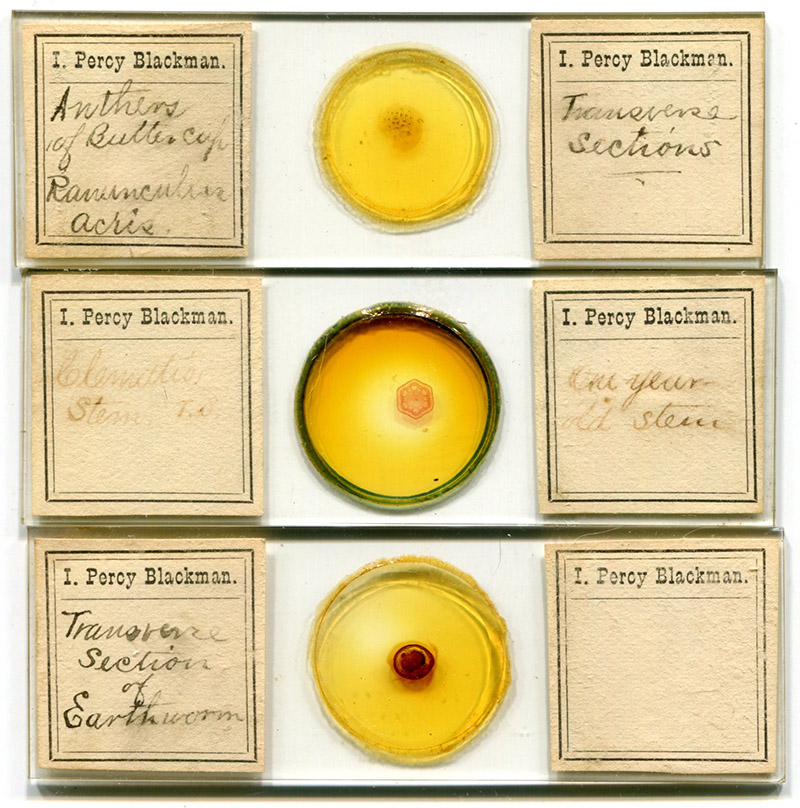 I. Percy Blackman.
Anthers
of Buttercup
Ranunculus
acris.
I. Percy Blackman.
Transverse
Sections
I. Percy Blackman.
Clematis
Stem T.S.
I. Percy Blackman.
One year
old stem
I. Percy Blackman.
Transverse
Section
of
Earthworm
I. Percy Blackman.